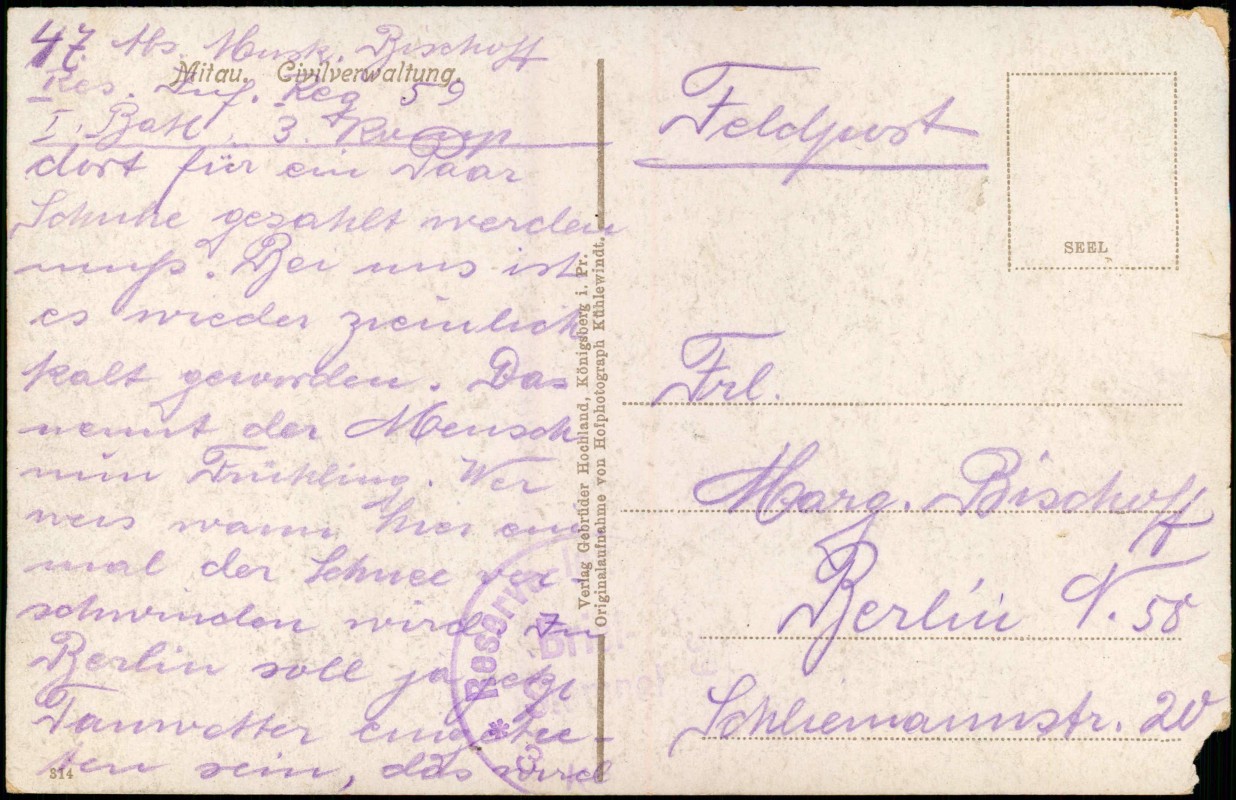 47. Abs. Musk. Bischoff
Mitau. Civilverwaltung.
Res. Inf. Reg 59
I. Batl. 3. Komp
dort für ein Paar
Schuhe gezahlt werden
muß. Bei uns ist
es wieder ziemlich
kalt geworden. Das
nennt der Mensch
nun Frühling. Wer
weis wann hier ein
mal der Schnee ver-
schwinden wird. In
Berlin soll ja jetzt
Tauwetter eingetre-
ten sein, das wird
314
Verlag Gebrüder Hochland, Königsberg i. Pr.
Originalaufnahme von Hofphotograph Kühlewindt.
* Reserve
Brief-
Feldpost
SEEL
Frl.
Marg. Bischoff
Berlin N. 58
Schliemannstr. 20